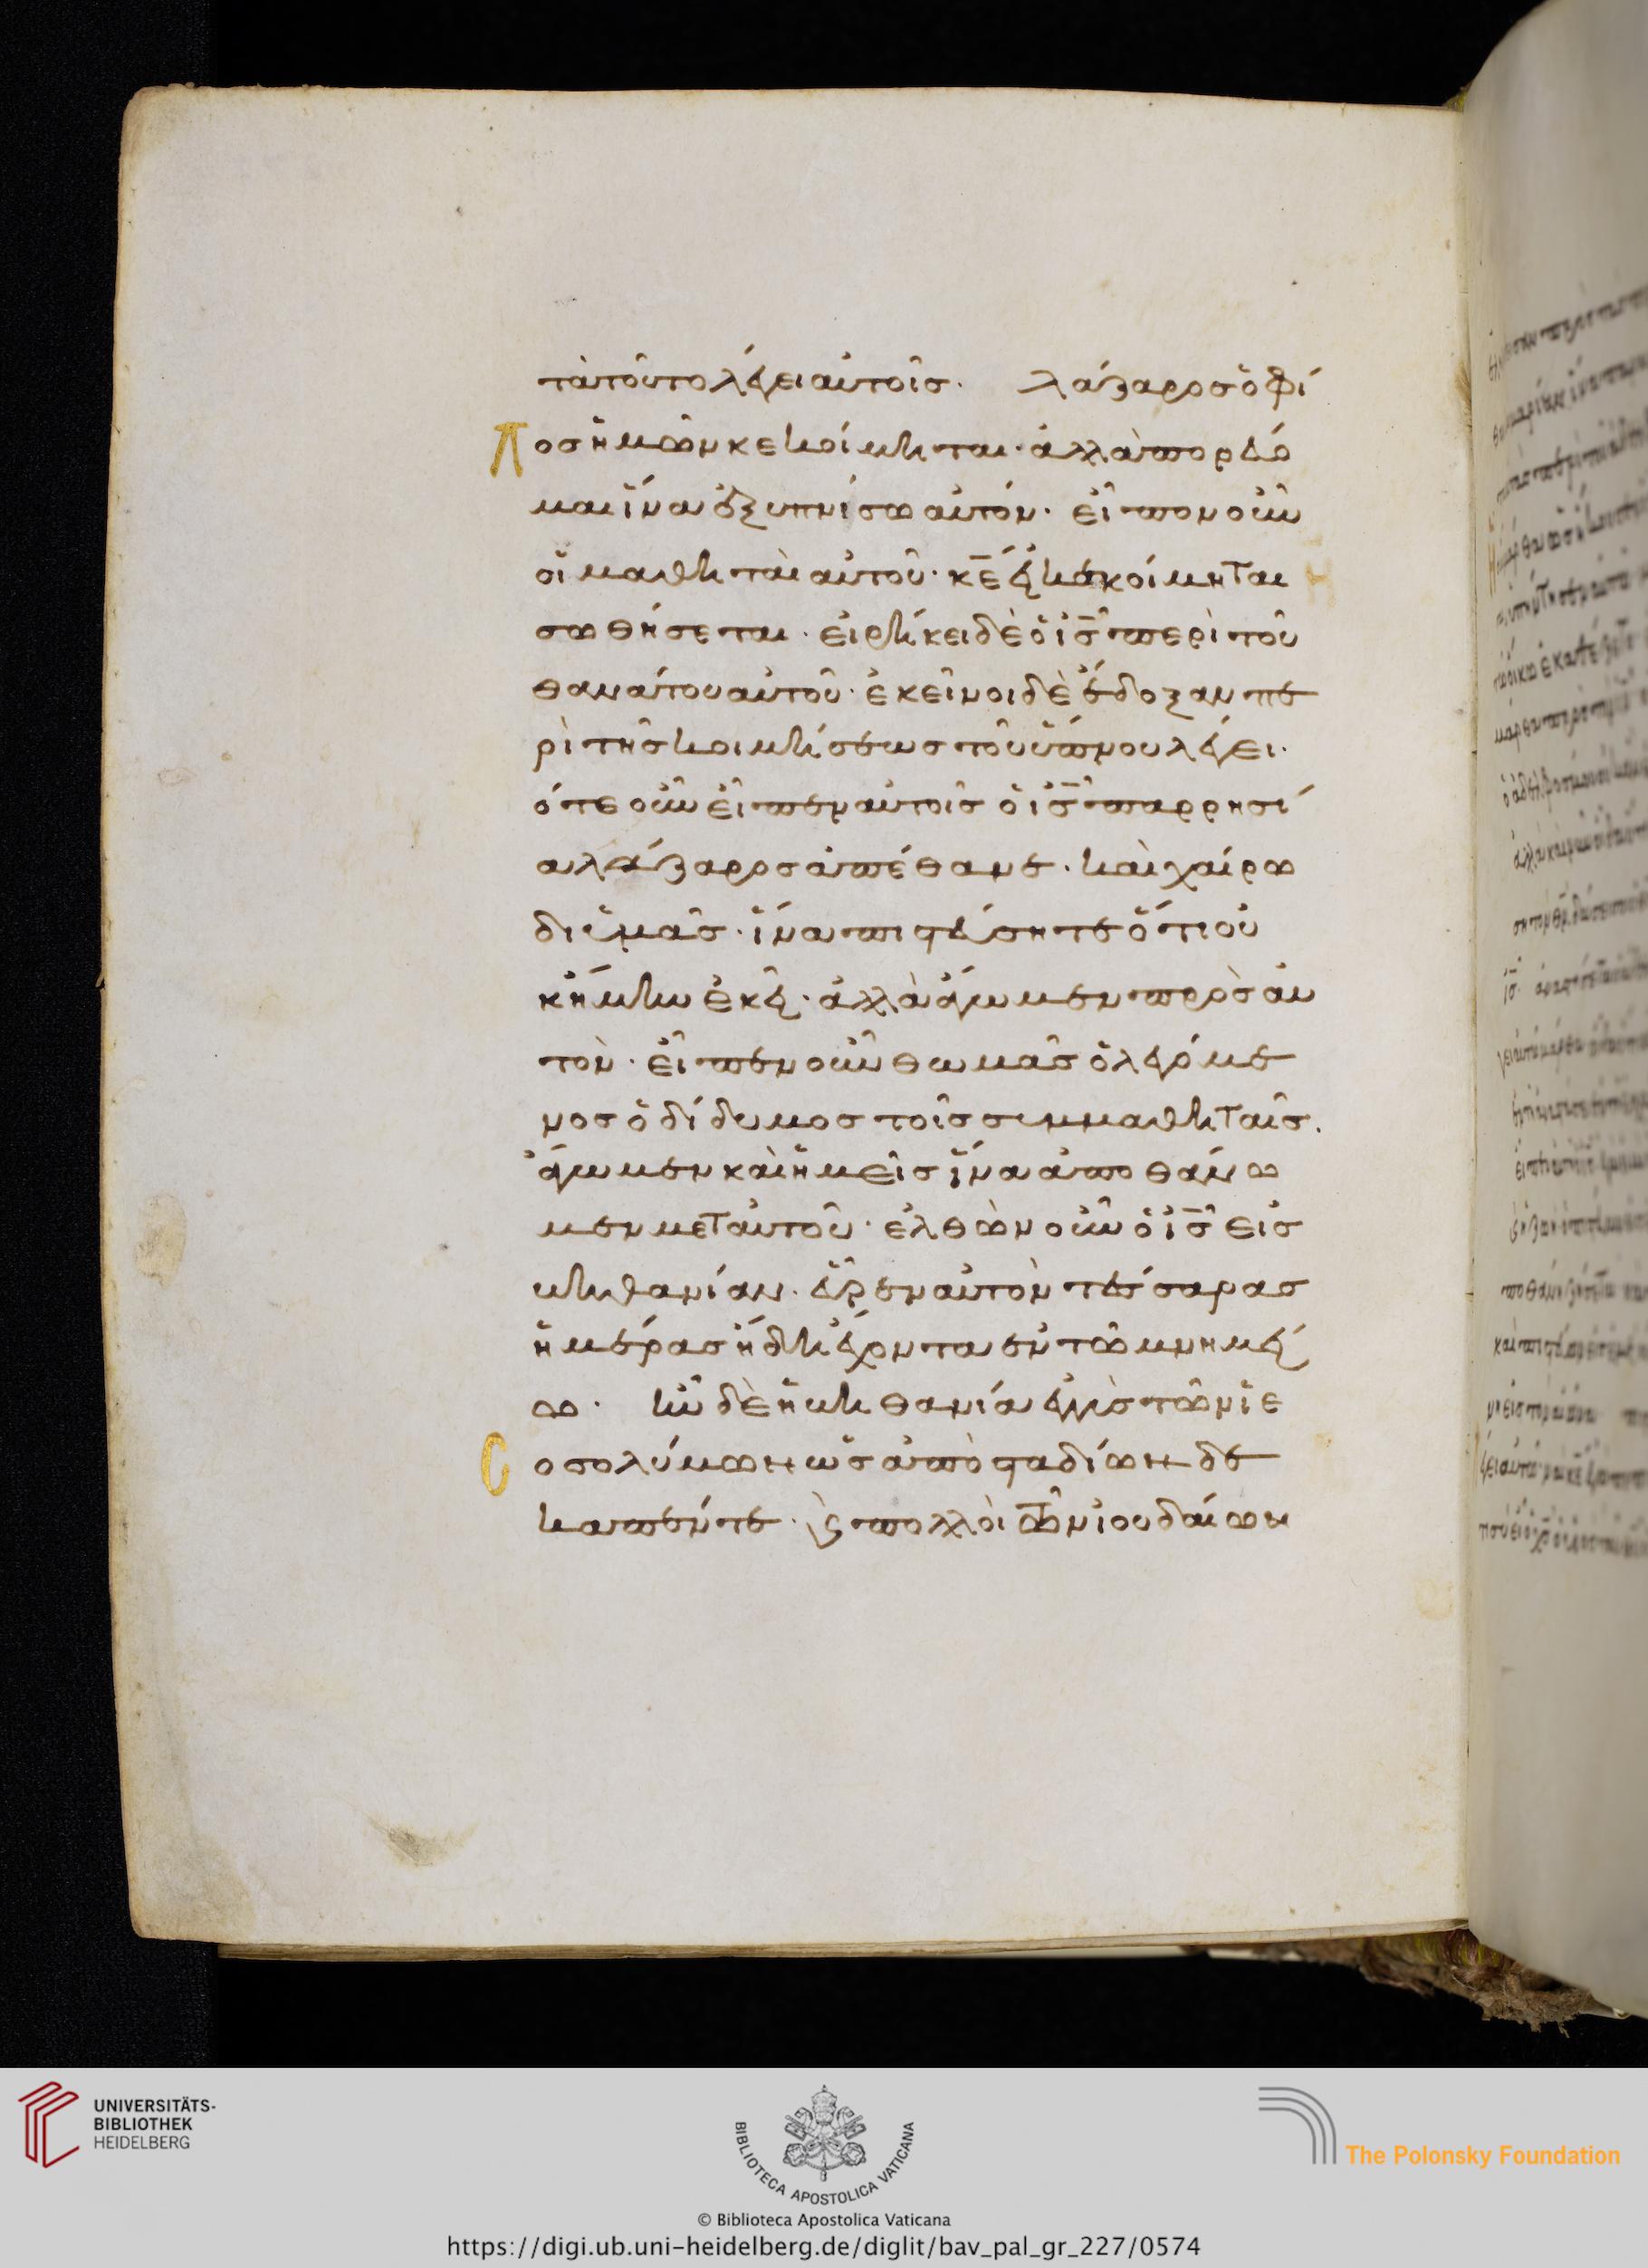 τὰ τοῦτο λέγει αὐτοῖς. λάζαρος ὁ φί
λος ἡμῶν κεκοίμηται· ἀλλὰ πορεύο
μαι ἵνα ἐξυπνίσω αὐτόν· εἶπον οὖν
οἱ μαθηταὶ αὐτοῦ· κ̅ε̅ εἰ κεκοίμηται
σωθήσεται· εἰρήκει δὲ ὁ ι̅ς̅ περὶ τοῦ
θανάτου αὐτοῦ· ἐκεῖνοι δὲ ἔδοξαν πε
ρὶ τῆς κοιμήσεως τοῦ ὕπνου λέγει·
ότε οὖν εἶπεν αὐτοῖς ὁ ι̅ς̅ παρρησί
α λάζαρος ἀπέθανε· καὶ χαίρω
δι ὑμᾶς· ἵνα πιστεύσητε ὅτι οὐ
κ ἤμην ἐκεῖ· ἀλλὰ ἄγωμεν πρὸς αυ
τὸν· εἶπεν οὖν θωμᾶς ὁ λεγόμε
νος ὁ δίδυμος τοῖς συμμαθηταῖς.
ἄγωμεν καὶ ἡμεῖς ἵνα ἀποθάνω
μεν μετ αὐτοῦ· ἐλθὼν οὖν ὁ ι̅ς̅ εἰς
βηθανίαν· εὗρεν αὐτὸν τέσσαρας
ἡμέρας ἤδη ἔχοντα ἐν τῶ μνημεί
ω· ἦν δὲ ἡ βηθανία ἐγγὺς τῶν ἱε
ροσολύμων ὡς ἀπὸ σταδίων δε
καπέντε· ϗ πολλοὶ τῶν ἰουδαίων
UNIVERSITÄTS-
BIBLIOTHEK
HEIDELBERG
BIBLIOTECA APOSTOLICA VATICANA
The Polonsky Foundation
© Biblioteca Apostolica Vaticana
https://digi.ub.uni-heidelberg.de/diglit/bav_pal_gr_227/0574